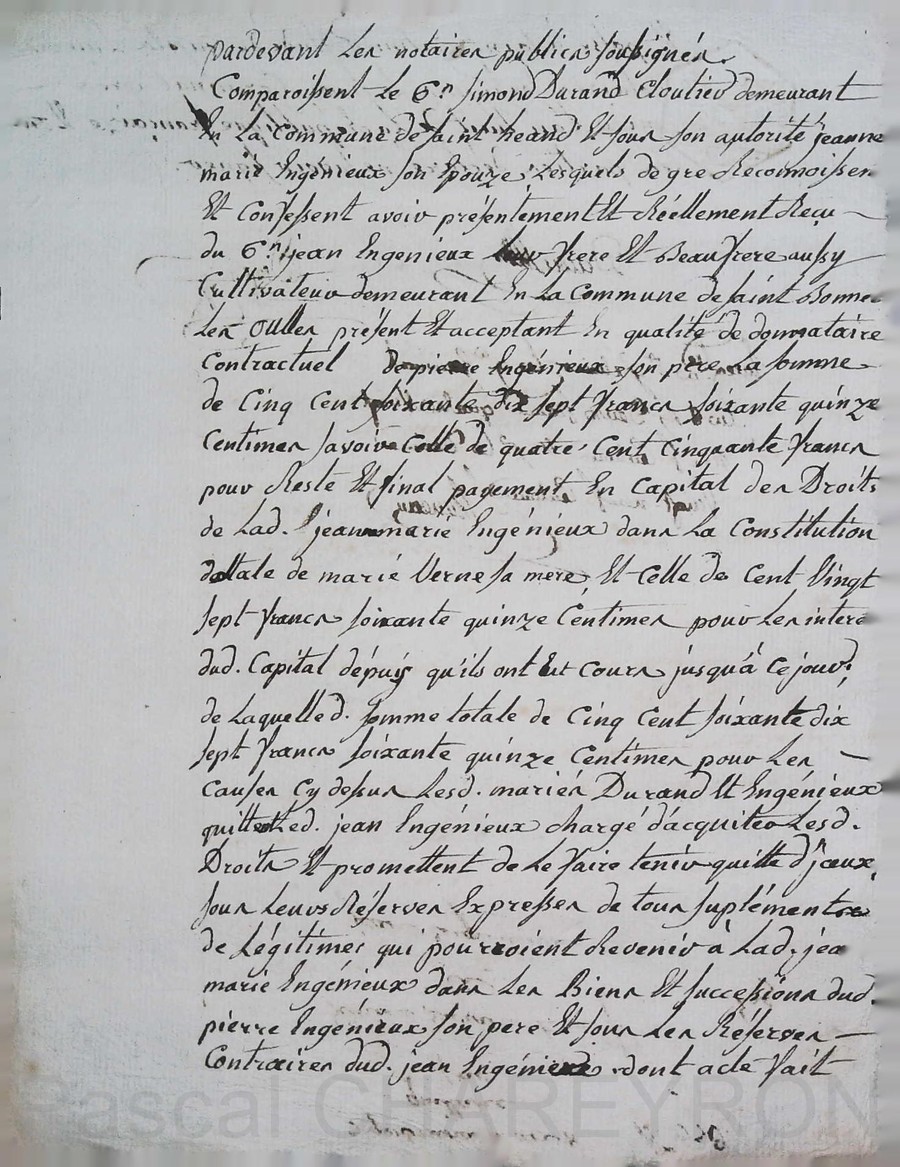 pardevant Les notaires publics soussignés.
Comparoissent Le C.n simond Durand Cloutier demeurant
En La Commune de saint heand Et sous son autorité jeanne
marie Ingénieux son Epouze, Lesquels de gre Reconnoissen
Et Confessent avoir présentement Et Réellement Reçu
du C.n jean Ingenieux Leur frere Et Beaufrere aussy
Cultivateur demeurant En La Commune de saint Bonne
Les Oulles présent Et acceptant En qualité de donnataire
Contractuel De pierre Ingénieux son pere La somme
de Cinq Cent soixante dix sept francs soixante quinze
Centimes savoir Celle de quatre Cent Cinquante francs
pour Reste Et final payement En Capital des Droits
de Lad. jeanne marie Ingénieux dans La Constitution
dottale de marie Verne sa mere, Et Celle de Cent Vingt
sept francs soixante quinze Centimes pour Les intere
dud. Capital dépuis qu'ils ont Eut Cours jusqu'á Ce jour;
de Laquelle d. somme totale de Cinq Cent soixante dix
sept francs soixante quinze Centimes pour Les
Causes Cy dessus Lesd. mariés Durand Et Ingénieux
quittent Led. jean Ingénieux chargé d'acquiter Lesd.
Droits Et promettent de Le faire tenir quitte d'jceux,
sous Leurs Réserves Expresses de tous suplémentes
de Légitimes qui pourroient Revenir à Lad. jea
marie Ingénieux dans Les Biens Et successions dud.
pierre Ingénieux son pere Et sous Les Réserves
Contraires dud. jean Ingénieux dont acte fait
Pascal CHAREYRON